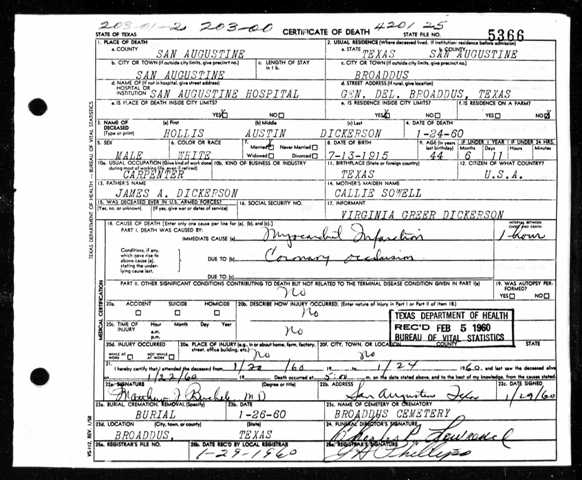 203-01-2 203-00 4201 25
STATE OF TEXAS CERTIFICATE OF DEATH STATE FILE NO. 5366
1. PLACE OF DEATH 2. USUAL RESIDENCE (Where deceased lived. If institution: residence before admission)
a. COUNTY SAN AUGUSTINE a. STATE TEXAS b. COUNTY SAN AUGUSTINE
b. CITY OR TOWN (If outside city limits, give precinct no.) SAN AUGUSTINE c. LENGTH OF STAY in 1 b. c. CITY OR TOWN (If outside city limits, give precinct no.) BROADDUS
d. NAME OF (If not in hospital, give street address) HOSPITAL OR INSTITUTION SAN AUGUSTINE HOSPITAL d. STREET ADDRESS (If rural, give location) GEN. DEL. BROADDUS, TEXAS
e. IS PLACE OF DEATH INSIDE CITY LIMITS? YES NO e. IS RESIDENCE INSIDE CITY LIMITS? YES NO f. IS RESIDENCE ON A FARM? YES NO
3. NAME OF DECEASED (Type or print) (a) First HOLLIS (b) Middle AUSTIN (c) Last DICKERSON 4. DATE OF DEATH 1-24-60
5. SEX MALE 6. COLOR OR RACE WHITE 7. Married Never Married Widowed Divorced 8. DATE OF BIRTH 7-13-1915 9. AGE (In years last birthday) 44 IF UNDER 1 YEAR Months 6 Days 11 IF UNDER 24 HRS. Hours Min.
10a. USUAL OCCUPATION (Give kind of work done during most of working life, even if retired) CARPENTER 10b. KIND OF BUSINESS OR INDUSTRY 11. BIRTHPLACE (State or foreign country) TEXAS 12. CITIZEN OF WHAT COUNTRY? U.S.A.
13. FATHER'S NAME JAMES A. DICKERSON 14. MOTHER'S MAIDEN NAME CALLIE SOWELL
15. WAS DECEASED EVER IN U.S. ARMED FORCES? (Yes, no, or unknown) (If yes, give war or dates of service) 16. SOCIAL SECURITY NO. 17. INFORMANT VIRGINIA GREER DICKERSON
18. CAUSE OF DEATH [Enter only one cause per line for (a), (b), and (c).] INTERVAL BETWEEN ONSET AND DEATH
PART I. DEATH WAS CAUSED BY: IMMEDIATE CAUSE (a) Myocardial Infarction 1 hour
Conditions, if any, which gave rise to above cause (a), stating the underlying cause last. DUE TO (b) Coronary occlusion
DUE TO (c)
PART II. OTHER SIGNIFICANT CONDITIONS CONTRIBUTING TO DEATH BUT NOT RELATED TO THE TERMINAL DISEASE CONDITION GIVEN IN PART I (a) No 19. WAS AUTOPSY PERFORMED? YES NO
20a. ACCIDENT SUICIDE HOMICIDE 20b. DESCRIBE HOW INJURY OCCURRED. (Enter nature of injury in Part I or Part II of item 18.) No
20c. TIME OF INJURY Hour a.m. p.m. Month Day Year No
TEXAS DEPARTMENT OF HEALTH
REC'D FEB 5 1960
BUREAU OF VITAL STATISTICS
20d. INJURY OCCURRED WHILE AT WORK NOT WHILE AT WORK 20e. PLACE OF INJURY (e.g., in or about home, farm, factory, street, office building, etc.) No 20f. CITY, TOWN, OR LOCATION COUNTY STATE No
21. I hereby certify that I attended the deceased from 1/22/60 19 to 1/24 1960, and last saw the deceased alive
on 1/22/60 Death occurred at 5:00 m. on the date stated above; and to the best of my knowledge, from the causes stated.
22a. SIGNATURE M.D. 22b. ADDRESS San Augustine Texas 22c. DATE SIGNED 1/29/60
23a. BURIAL, CREMATION, REMOVAL (Specify) BURIAL 23b. DATE 1-26-60 23c. NAME OF CEMETERY OR CREMATORY BROADDUS CEMETERY
23d. LOCATION (City, town, or county) (State) BROADDUS, TEXAS 24. FUNERAL DIRECTOR'S SIGNATURE
25a. REGISTRAR'S FILE NO. 25b. DATE REC'D BY LOCAL REGISTRAR 1-29-1960 25c. REGISTRAR'S SIGNATURE Phillips
TEXAS DEPARTMENT OF HEALTH — BUREAU OF VITAL STATISTICS
MEDICAL CERTIFICATION
VS-112, REV. 1/58